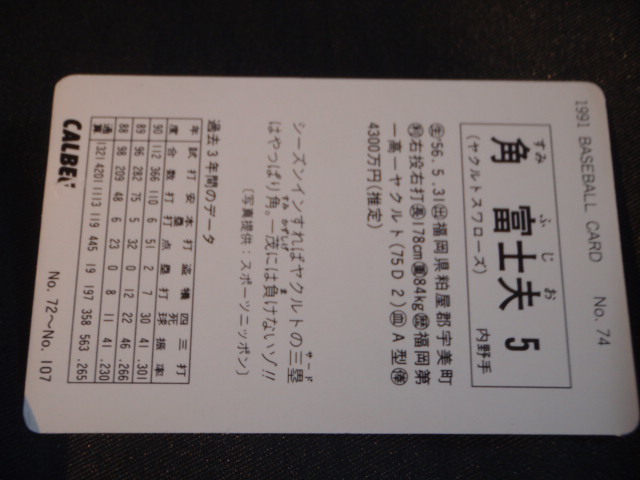 1991 BASEBALL CARD No. 74
すみ ふじお
角 富士夫 5
(ヤクルトスワローズ) 内野手
㊌'56.5.31㊌福岡県粕屋郡宇美町
㊌右投右打㊌178cm㊌84kg㊌福岡第
一高ーヤクルト(75D2)㊌A型㊌
4300万円(推定)
サード
シーズンインすればヤクルトの三塁
すみ かずしげ ま
はやっぱり角。一茂には負けないゾ!!
(写真提供:スポーツニッポン)
過去3年間のデータ
年度 試合数 打数 安打 本塁打 打点 盗塁 犠打 四死球 三振 打率
90 112 366 110 6 51 2 7 30 41 .301
89 96 282 75 5 32 0 12 22 46 .266
88 98 209 48 6 23 0 8 11 41 .230
通算 1321 4201 1113 119 445 19 197 358 563 .265
CALBEE No. 72〜No. 107